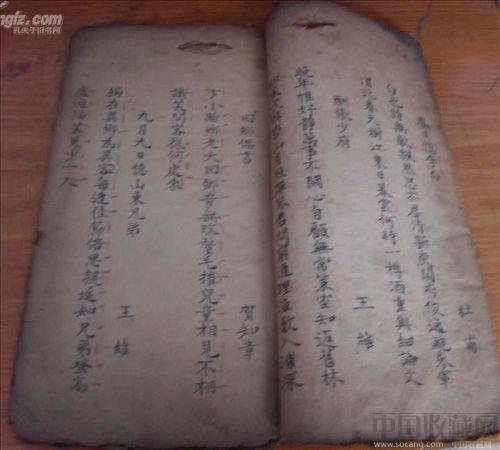 春日憶李白
杜甫
白也詩無敵飄然思不羣清新庾開府俊逸鮑參軍
渭北春天樹江東日暮雲何時一樽酒重與細論文
酬張少府
王維
晚年惟好靜萬事不關心自顧無常策空知返舊林
松風吹解帶山月照彈琴君問窮通理漁歌入浦深
回鄉偶書
賀知章
少小離鄉老大回鄉音無改鬢毛摧兒童相見不相
識笑問客從何處來
九月九日憶山東兄弟
王維
獨在異鄉為異客每逢佳節倍思親遙知兄弟登高
處遍插茱萸少一人
gfz.com
孔夫子旧书网
中国收藏网
www.socang.com 中国收藏网